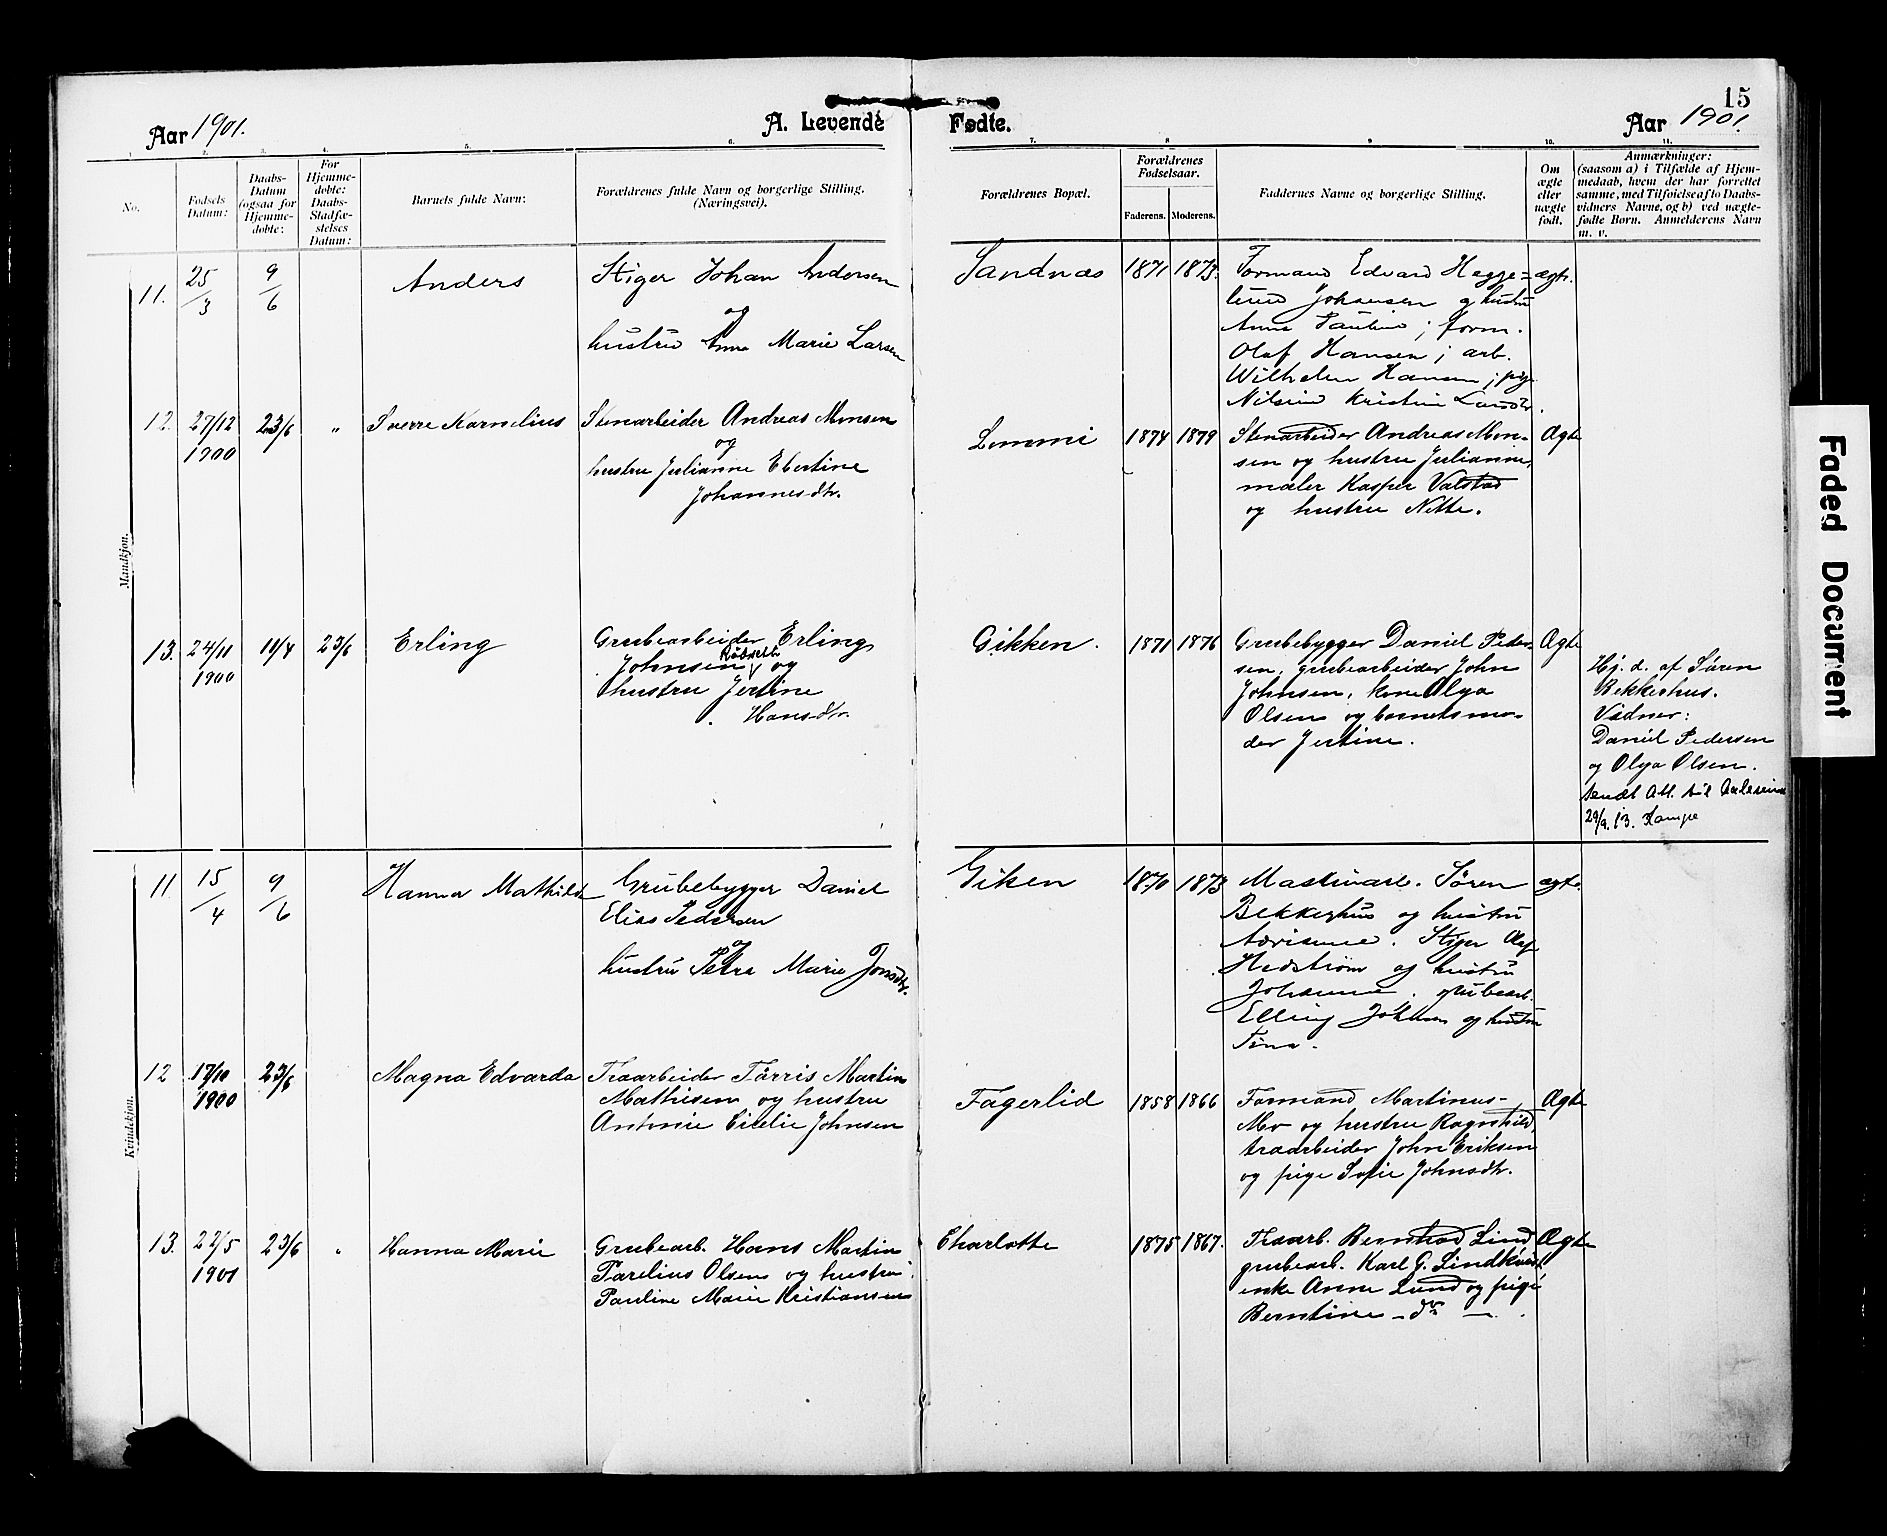 15
Aar 1901.
A. Levende Fødte.
Aar 1901.
1. 2. 3. 4. 5. 6. 7. 8 9 10. 11.
No.
Fødsels Datum:
Daabs-
Datum
(ogsaa for
Hjemme-
døbte:
For
Hjemme-
døbte:
Daabs-
Stadfæ-
stelses
Datum:
Barnets fulde Navn:
Forældrenes fulde Navn og borgerlige Stilling.
(Næringsvei).
Forældrenes Bopæl.
Forældrenes
Fødselsaar.
Faderens. Moderens.
Faddernes Navne og borgerlige Stilling.
Om
ægte
eller
uægte
født.
Anmærkninger:
(saasom a) i Tilfælde af Hjem-
medaab, hvem der har forrettet
samme, med Tilføielse af to Daabs-
vidners Navne, og b) ved uægte-
fødte Børn. Anmelderens Navn
m. v.
Mandkjøn.
11. 25/3 9/6 Anders
Stiger Johan Andersen
og
hustru Anna Marie Larsen
Sandnæs 1871 1873.
Formand Edvard Hegge=
lund Johansen og hustru
Anna Pauline; form.
Olaf Hansen; arb.
Wilhelm Hansen; pige
Kristine
ægte.
12. 27/12 1900 23/6 " Sverre Kornelius
Stenarbeider Andreas Monsen
og
hustru Julianne Ebertine
Johannesdtr.
Lommi 1874 1879
Stenarbeider Andreas Mon-
sen og hustru Julianne,
maler Kasper Valstad
og hustru Nette.
Ægte
13. 24/11 1900 11/4 23/6 Erling
Grubearbeider Erling
Johnsen og
hustru Jertine
Hansdtr.
Gikken. 1871 1876
Grubebygger Daniel Peder-
sen, grubearbeider John
Johnsen, kone Olga
Olsen og barnets mo-
der Jertine.
Ægte
Hj. d. af Søren
Bekkerhus.
Vidner:
Daniel Pedersen
og Olga Olsen.
Sendt Att. til
29/9. 13. Kampe
Kvindekjøn.
11 15/4 9/6 Hanna Mathilde
Grubebygger Daniel
Elias Pedersen
og
hustru Petra Marie Jonsdtr.
Giken 1870 1873
Maskinarb. Søren
Bekkerhus og hustru
Stiger Olaf
Hedstrøm og hustru
Johanna. grubearb.
Elling Johnsen og hustru
Tina.
ægte.
12 17/10 1900 23/6 Magna Edvarda
Træarbeider Tørris Martin
Mathisen og hustru
Antonie Cicelie Johnsen
Fagerlid 1858 1866
Formand Martinus
Mo og hustru Ragnhild,
træarbeider John Eriksen
og pige Sofie Johnsdtr.
Ægte
13. 22/5 1901 23/6 " Hanna Marie
Grubearb. Hans Martin
Parelius Olsen og hustru
Pauline Marie Kristiansen
Charlotte 1875 1867.
Træarb. Bernhard Lund
grubearb. Karl G. Lindkvist
enke Anna Lund og pige
Berntine – do –
Ægte
Faded Document